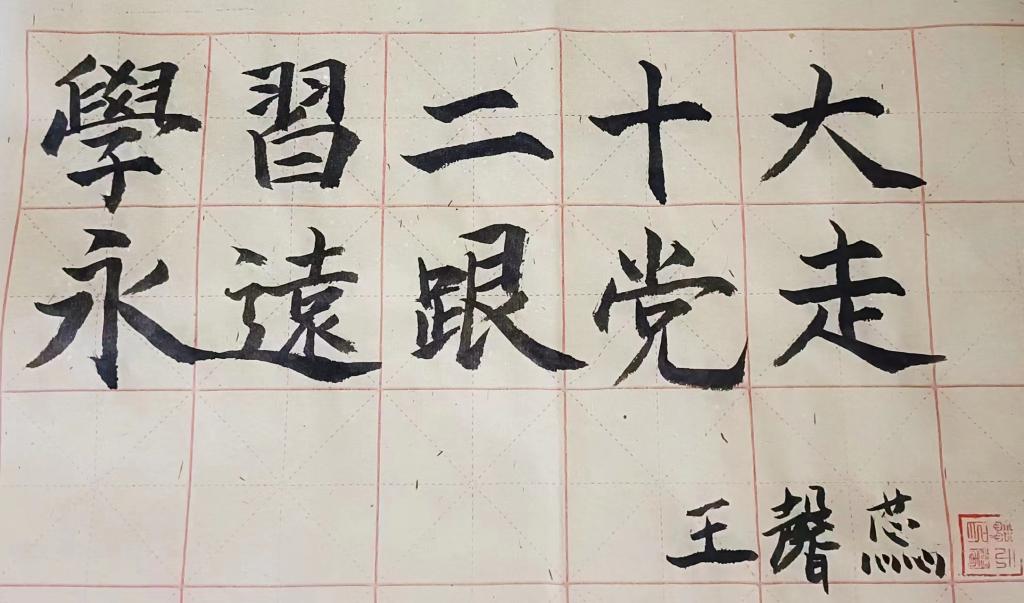 學習二十大
永遠跟党走
王馨蕊